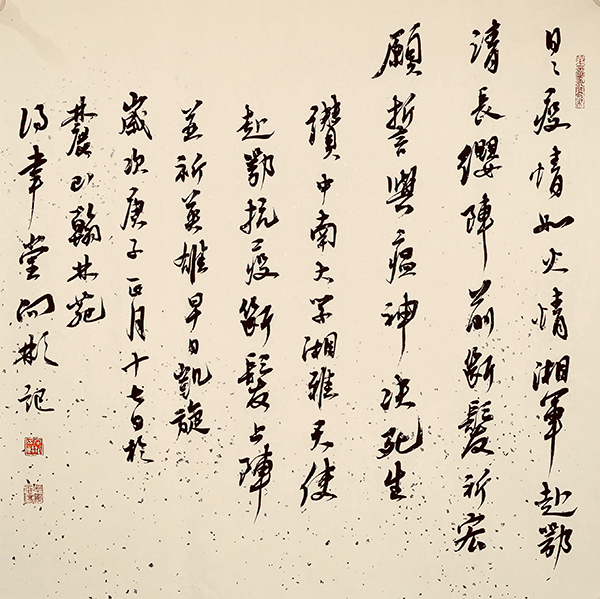 日〻疫情如火情湘軍赴鄂
請長纓陣前斷髮祈宏
願誓與瘟神決死生
讚中南大学湘雅天使
赴鄂抗疫斷髮上陣
並祈英雄早日凱旋
歲次庚子正月十七日於
麓山翰林苑
堂彬記